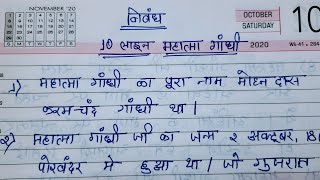 NOVEMBER '20
OCTOBER
SATURDAY
10
2020 Wk-41
निबंध
10 लाइन महात्मा गाँधी
1) महात्मा गाँधी का पूरा नाम मोहन दास
करमचंद गाँधी था।
2) महात्मा गाँधी जी का जन्म २ अक्टूबर, 18
पोरबंदर मे हुआ था। जो गुजरात